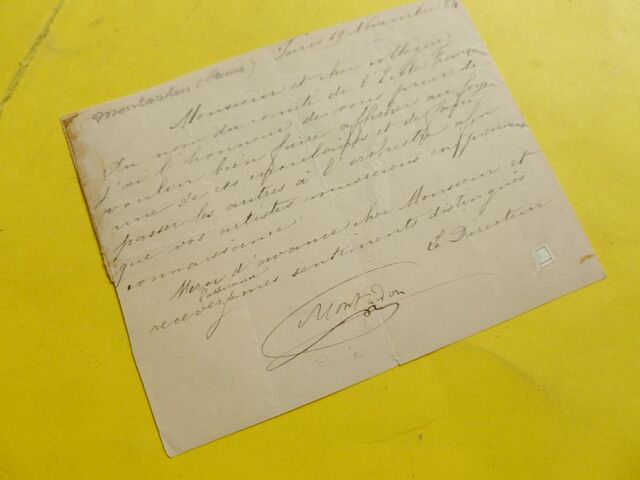 Montardon (René)
Paris 19 Novembre 84
Monsieur et cher collègue
Au nom du comité de l'Aste Français
j'ai l'honneur de vous prier de
vouloir bien faire afficher au foyer
une de ces circulaires et de faire
passer les autres à l'orchestre afin
que vos artistes musiciens en prennent
connaissance
Merci d'avance cher Monsieur et
recevez mes sentiments distingués
Le Directeur